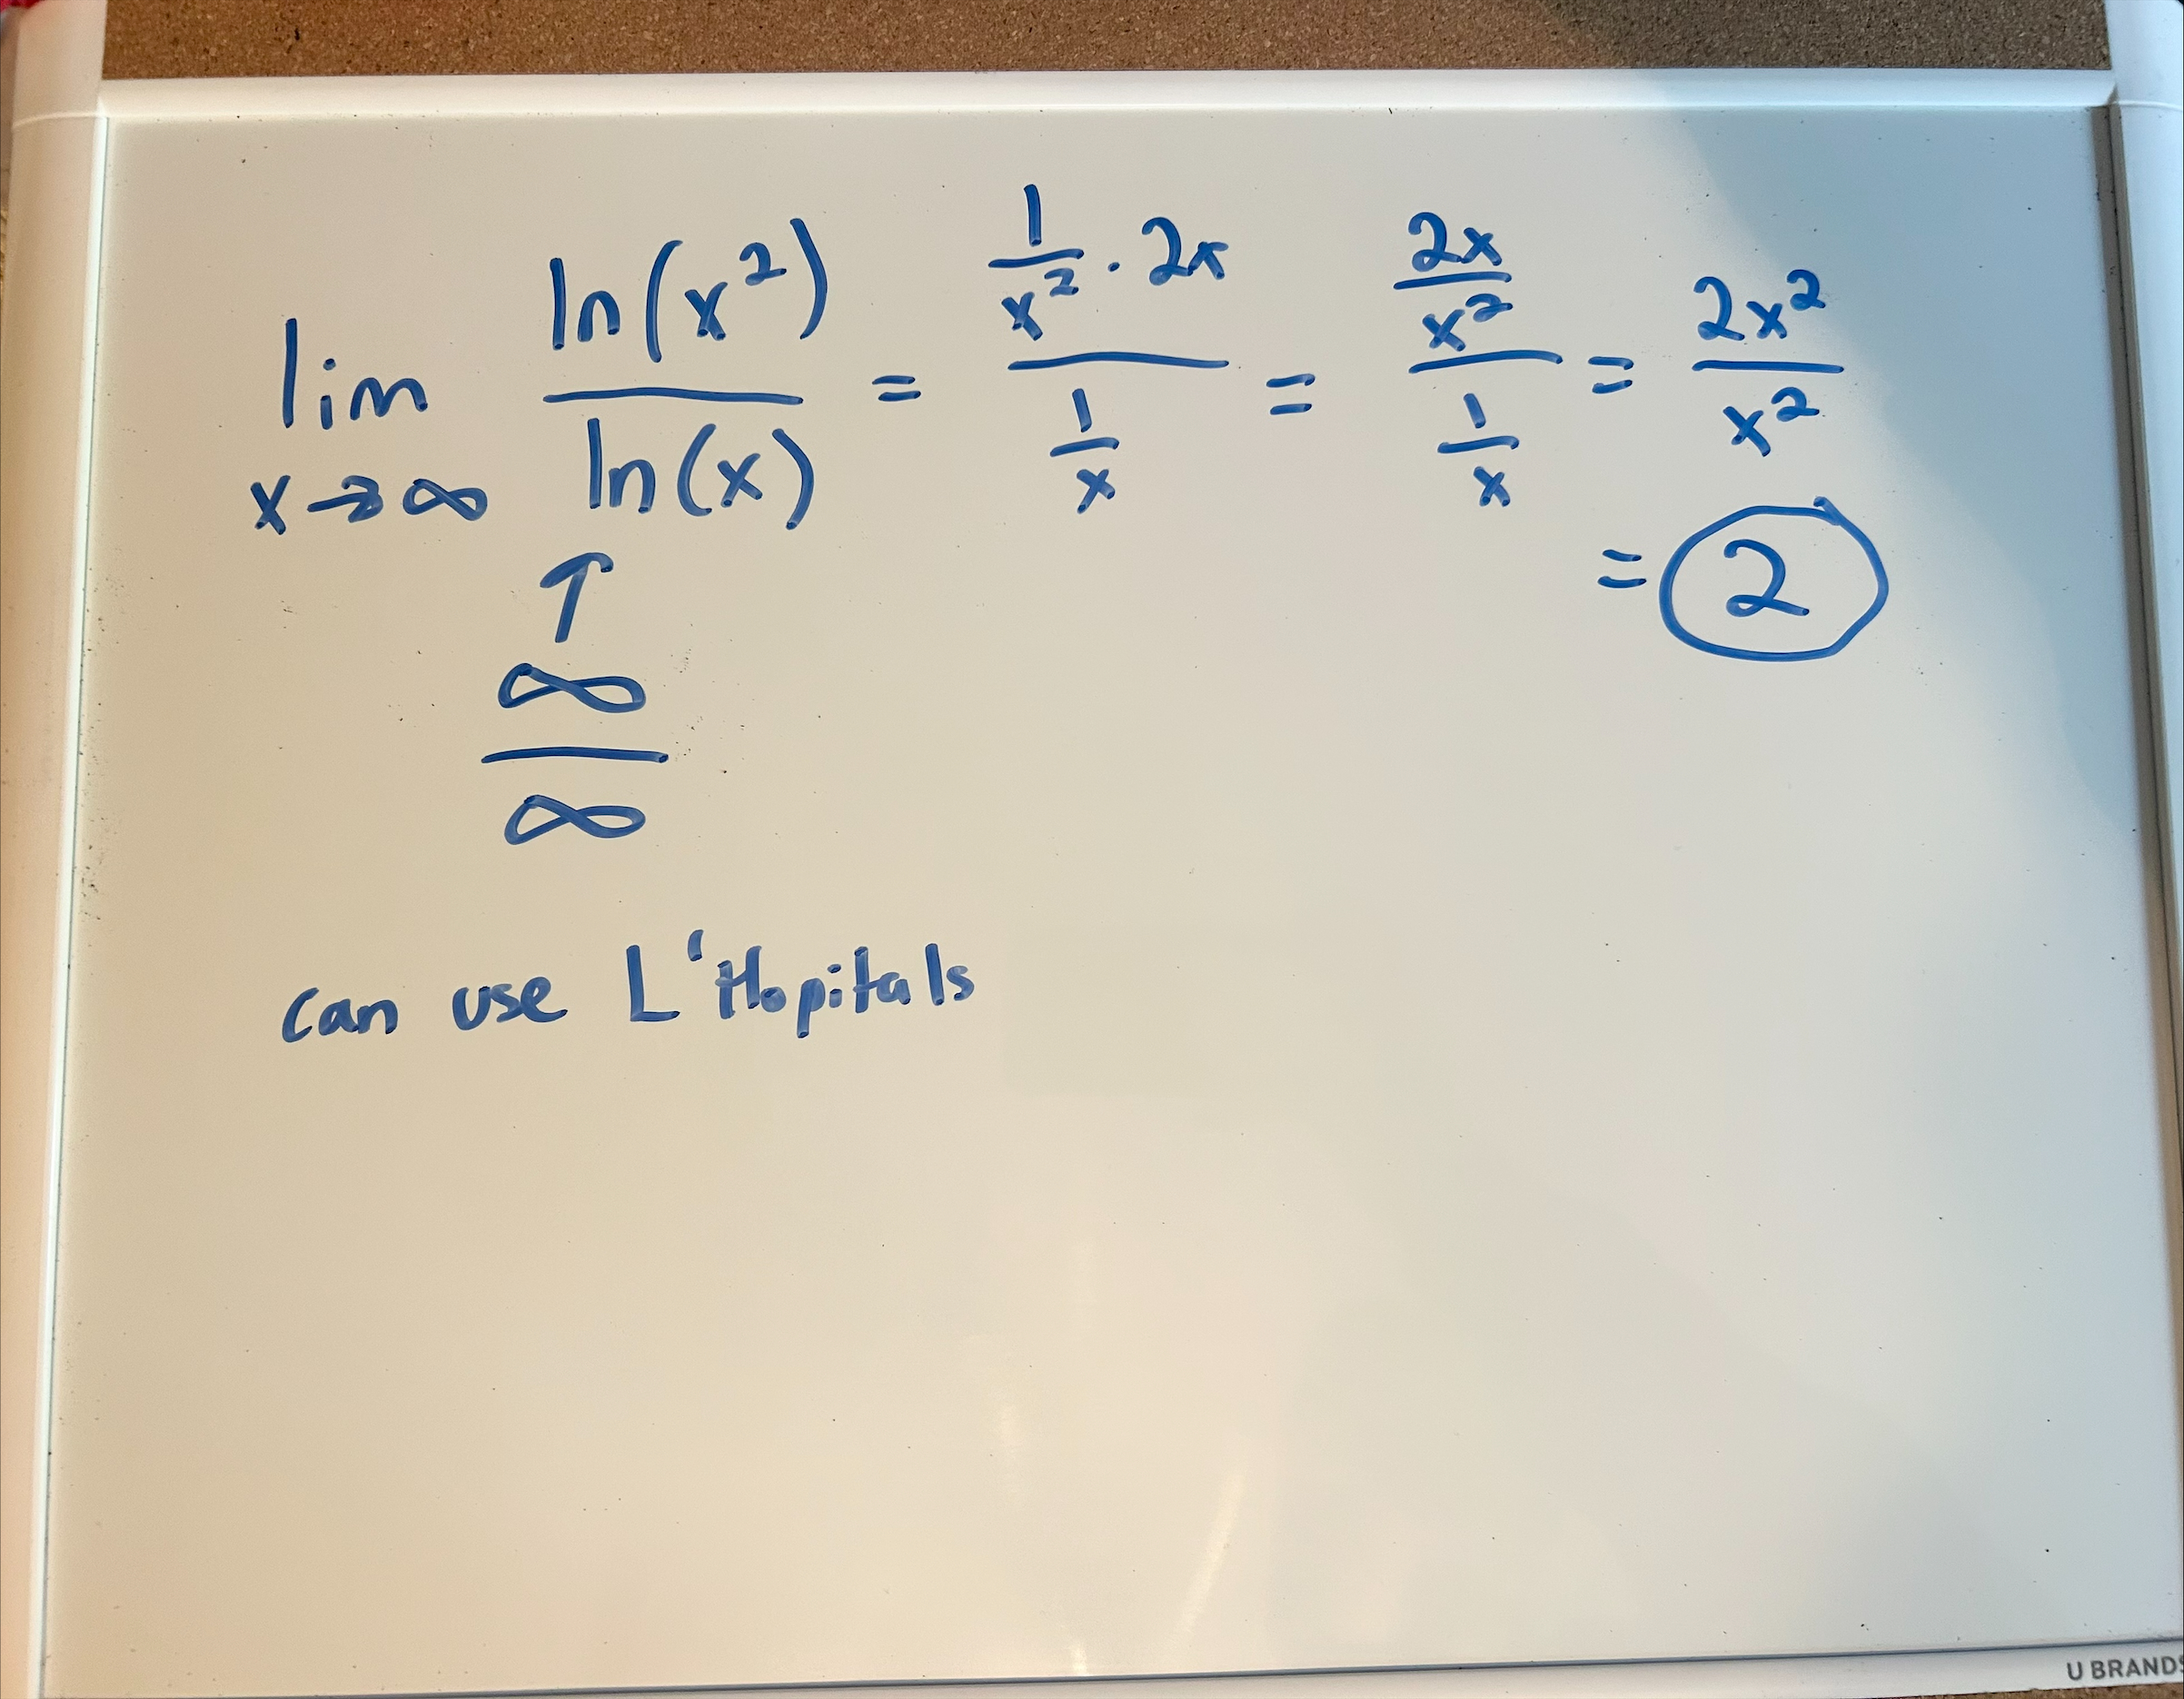 lim x→∞ ln(x²)/ln(x) = (1/x² · 2x)/(1/x) = (2x/x²)/(1/x) = 2x²/x²
= 2
↑
∞/∞
can use L'Hopitals
U BRANDS